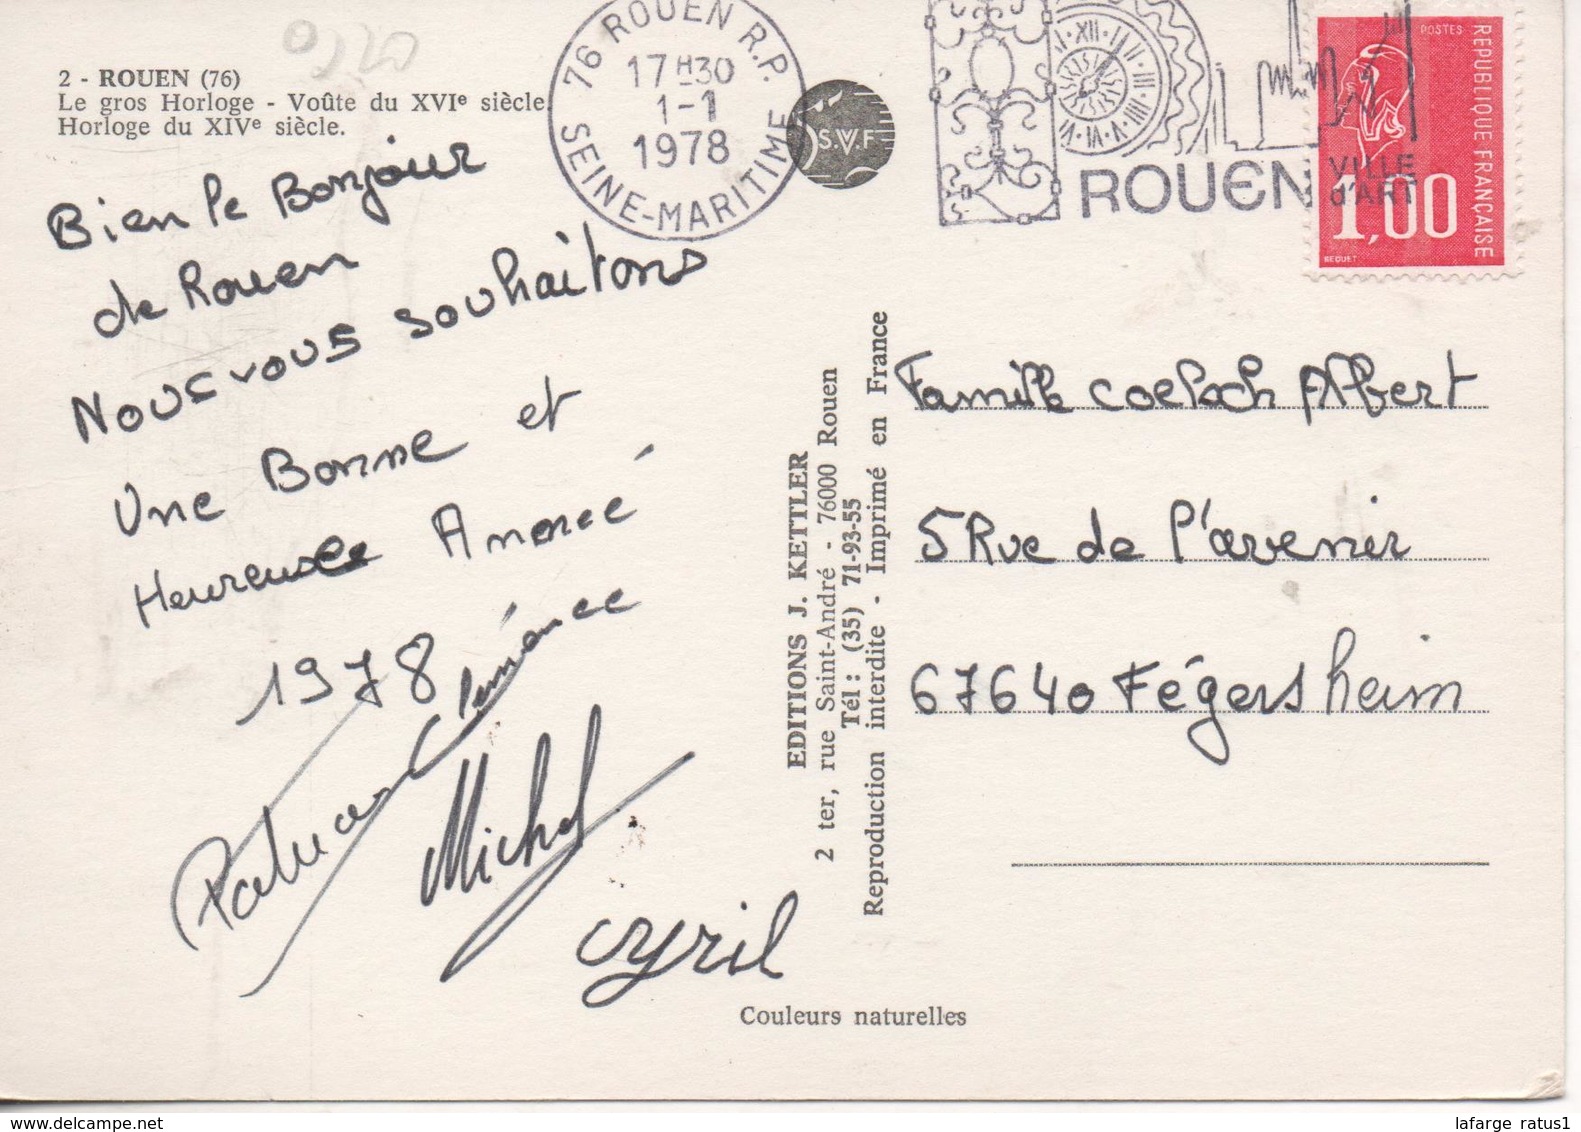 2 - ROUEN (76)
Le gros Horloge - Voûte du XVIe siècle.
Horloge du XIVe siècle.
76 ROUEN R.P.
17 H30
1-1
1978
SEINE-MARITIME
S.V.F
ROUEN
VILLE
d'ART
POSTES
REPUBLIQUE FRANÇAISE
1,00
BEQUET
Bien le Bonjour
de Rouen
Nous vous souhaitons
Une Bonne et
Heureuse Année
1978
Clémence
Michel
cyril
EDITIONS J. KETTLER
2 ter, rue Saint-André - 76000 Rouen
Tél : (35) 71-93-55
Reproduction interdite - Imprimé en France
Famille Albert
5 Rue de l'avenir
67640 Fégersheim
Couleurs naturelles
lafarge ratus1